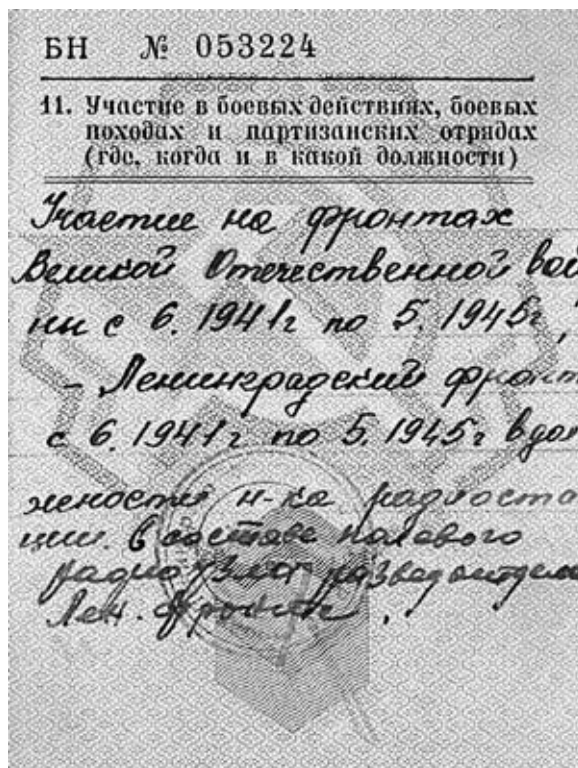 БН № 053224
11. Участие в боевых действиях, боевых
походах и партизанских отрядах
(где, когда и в какой должности)
Участие на фронтах
Великой Отечественной вой
ны с 6. 1941г по 5. 1945г,
- Ленинградский фронт
с 6. 1941г по 5. 1945г в дол
жности н-ка радиоста
ции. В составе полевого
радиоузла разведотдела
Лен. фронта.